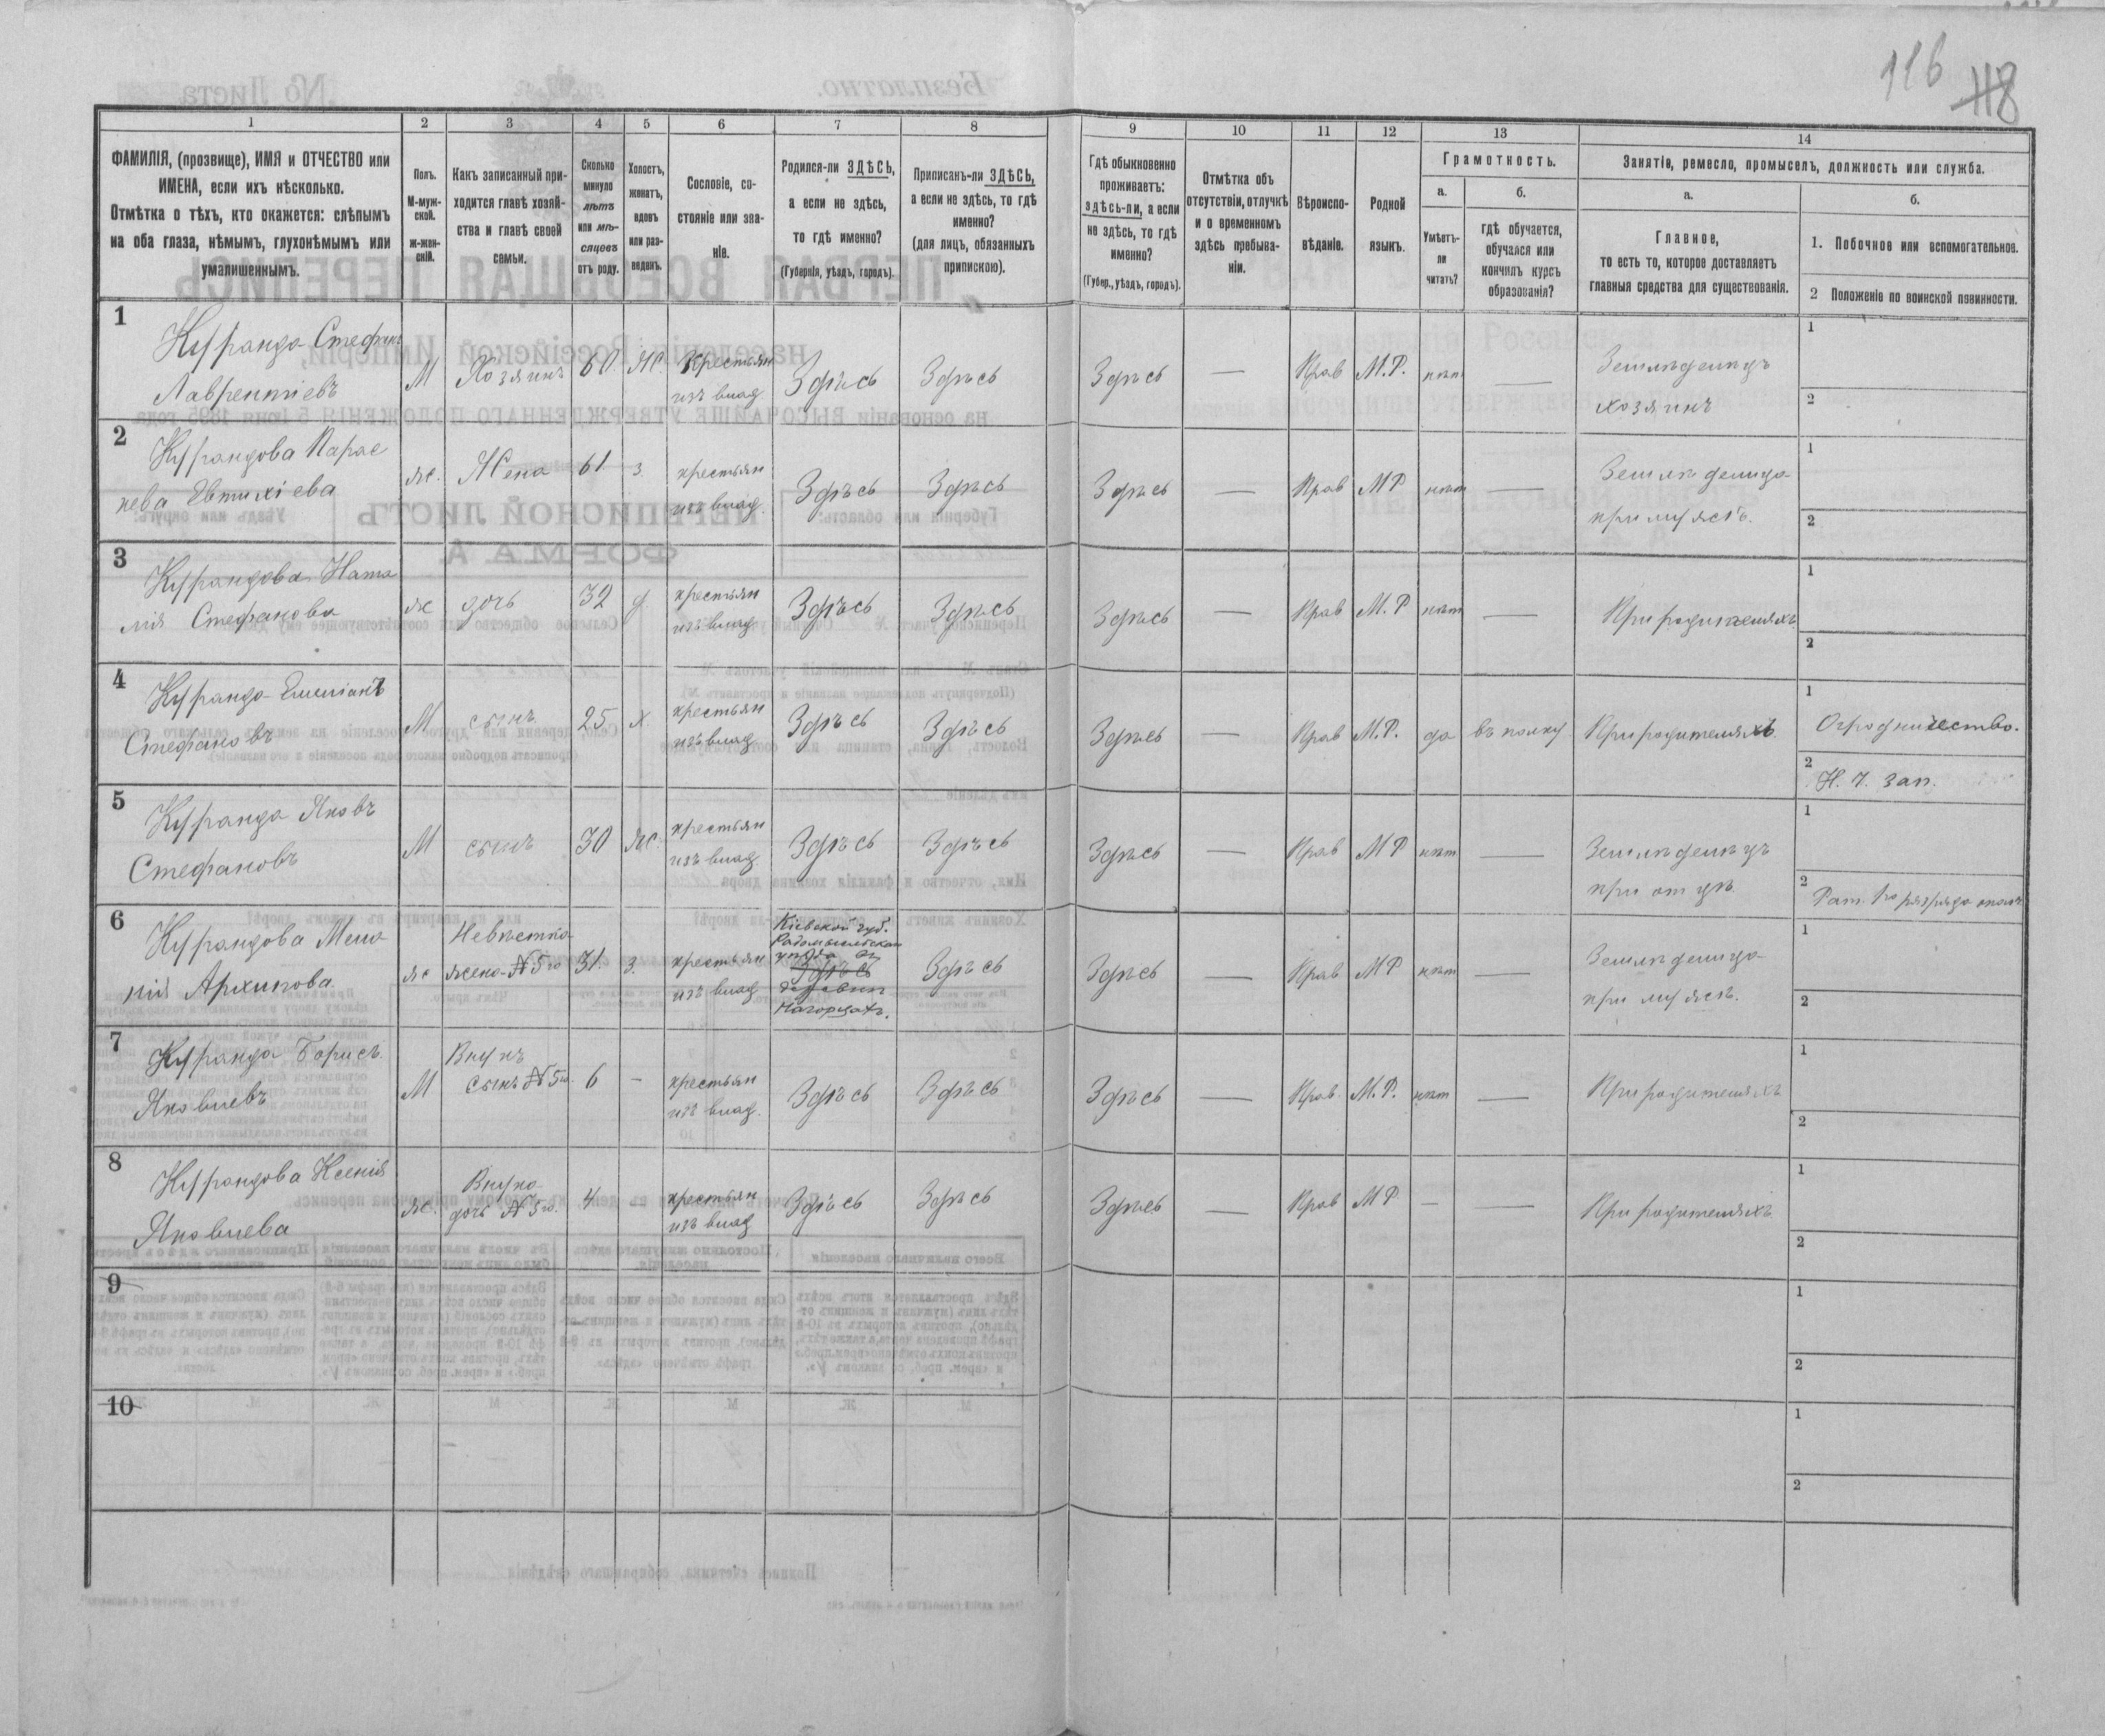 116 118
1 2 3 4 5 6 7 8 9 10 11 12 13 14
ФАМИЛІЯ, (прозвище), ИМЯ и ОТЧЕСТВО или
ИМЕНА, если ихъ нѣсколько.
Отмѣтка о тѣхъ, кто окажется: слѣпымъ
на оба глаза, нѣмымъ, глухонѣмымъ или
умалишеннымъ.
Полъ.
М-муж-
ской.
ж-жен-
скій.
Какъ записанный при-
ходится главѣ хозяй-
ства и главѣ своей
семьи.
Сколько
минуло
лѣтъ
или мѣ-
сяцевъ
отъ роду.
Холостъ,
женатъ,
вдовъ
или раз-
веденъ.
Сословіе, со-
стояніе или зва-
ніе.
Родился-ли ЗДѢСЬ,
а если не здѣсь,
то гдѣ именно?
(Губернія, уѣздъ, городъ).
Приписанъ-ли ЗДѢСЬ,
а если не здѣсь, то гдѣ
именно?
(для лицъ, обязанныхъ
припискою).
Гдѣ обыкновенно
проживаетъ:
здѣсь-ли, а если
не здѣсь, то гдѣ
именно?
(Губер., уѣздъ, городъ).
Отмѣтка объ
отсутствіи, отлучкѣ
и о временномъ
здѣсь пребыва-
ніи.
Вѣроиспо-
вѣданіе.
Родной
языкъ.
Грамотность.
а.
Умѣетъ-
ли
читать?
б.
гдѣ обучается,
обучался или
кончилъ курсъ
образованія?
Занятіе, ремесло, промыселъ, должность или служба.
а.
Главное,
то есть то, которое доставляетъ
главныя средства для существованія.
б.
1. Побочное или вспомогательное.
2 Положеніе по воинской повинности.
1
Курганда Стефанъ
Лаврентіевъ
М Хозяинъ 60 Ж. Крестьян
изъ влад. Здѣсь Здѣсь Здѣсь — Прав М.Р. нѣт — Земледелецъ
хозяинъ
1
2
2
Кургандова Парас
кева Евтихіева
ж. Жена 61 з крестьян
изъ влад. Здѣсь Здѣсь Здѣсь — Прав МР нѣт — Земледелица
при мужѣ.
1
2
3
Кургандова Ната
лія Стефанова
ж дочь 32 д крестьян
изъ влад. Здѣсь Здѣсь Здѣсь — Прав М.Р нѣт — При родителяхъ
1
2
4
Курганда Емеліанъ
Стефановъ
М сынъ 25 х. крестьян
изъ влад Здѣсь Здѣсь Здѣсь — Прав М.Р. да въ полку При родителяхъ
1 Огродничество.
2 Н. Ч. зап.
5
Курганда Яковъ
Стефановъ
М сынъ 30 ж. крестьян
изъ влад. Здѣсь Здѣсь Здѣсь — Прав МР нѣт — Земледелецъ
при отцѣ
1
2 Рат. 1го разряда ополч
6
Кургандова Мела
нія Архипова
ж Невѣстка
жена №5го 31 з. крестьян
изъ влад
Кіевской губ.
Радомысльскаго
уѣзда въ
Здѣсь
деревни
Нагорцахъ.
Здѣсь Здѣсь — Прав МР нѣт — Земледелица
при мужѣ.
1
2
7
Курганда Борисъ
Яковлевъ
М Внукъ
сынъ №5го 6 — крестьян
изъ влад. Здѣсь Здѣсь Здѣсь — Прав. М.Р. нѣт — При родителяхъ
1
2
8
Кургандова Ксенія
Яковлева
ж. Внука
дочь №5го. 4 — крестьян
изъ влад Здѣсь Здѣсь Здѣсь — Прав МР — — При родителяхъ
1
2
9
1
2
10
1
2